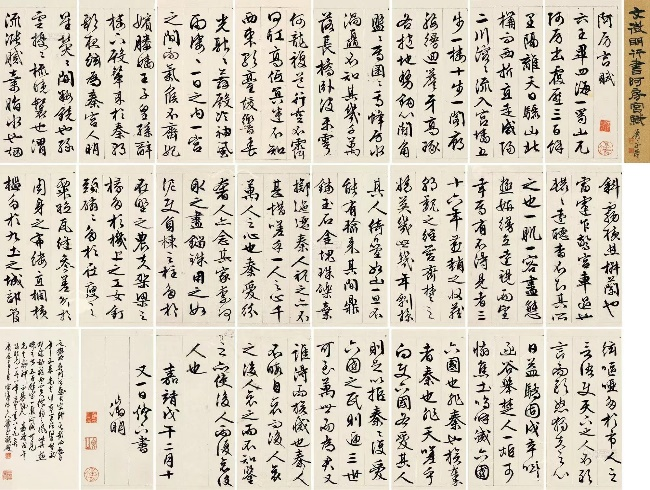 文徵明行書阿房宮賦
阿房宮賦
六王畢四海一蜀山兀
阿房出覆壓三百餘
里隔離天日驪山北
構而西折直走咸陽
二川溶溶流入宮墻五
步一樓十步一閣廊
腰縵回簷牙高啄
各抱地勢鉤心鬬角
盤盤焉囷囷焉蜂房水
渦矗不知其幾千萬
落長橋臥波未雲
何龍複道行空不霽
何虹高低冥迷不知
西東歌臺暖響春
光融融舞殿冷袖風
雨淒淒一日之内一宮
之間而氣候不齊妃
嬪媵嬙王子皇孫辭
樓下殿輦來於秦朝
歌夜絃為秦宮人明
星熒熒開粧鏡也綠
雲擾擾梳曉鬟也渭
流漲膩棄脂水也烟
斜霧橫焚椒蘭也
雷霆乍驚宮車過也
轆轆遠聽杳不知其所
之也一肌一容盡態
極妍縵立遠視而望
幸焉有不得見者三
十六年燕趙之收藏
韓魏之經營齊楚之
精英幾世幾年剽掠
其人倚疊如山一旦不
能有輸來其間鼎
鐺玉石金塊珠礫棄
擲邐迤秦人視之亦不
甚惜嗟乎一人之心千
萬人之心也秦愛紛
奢人亦念其家奈何
取之盡錙銖用之如
泥沙使負棟之柱多於
南畝之農夫架梁之
椽多於機上之工女釘
頭磷磷多於在庾之
粟粒瓦縫參差多於
周身之帛縷直欄橫
檻多於九土之城郭管
絃嘔啞多於市人之
言語使天下之人不敢
言而敢怒獨夫之心
日益驕固戍卒叫
函谷舉楚人一炬可
憐焦土嗚呼滅六國
六國也非秦也族秦
者秦也非天下也嗟乎
向使六國各愛其人
則足以拒秦秦復愛
六國之民則遞三世
可至萬世而為君又
誰得而族滅也秦人
不暇自哀而後人哀
之後人哀之而不知鑒
之亦使後人而復哀後
人也
嘉靖戊午二月十
又一日
書
徵明